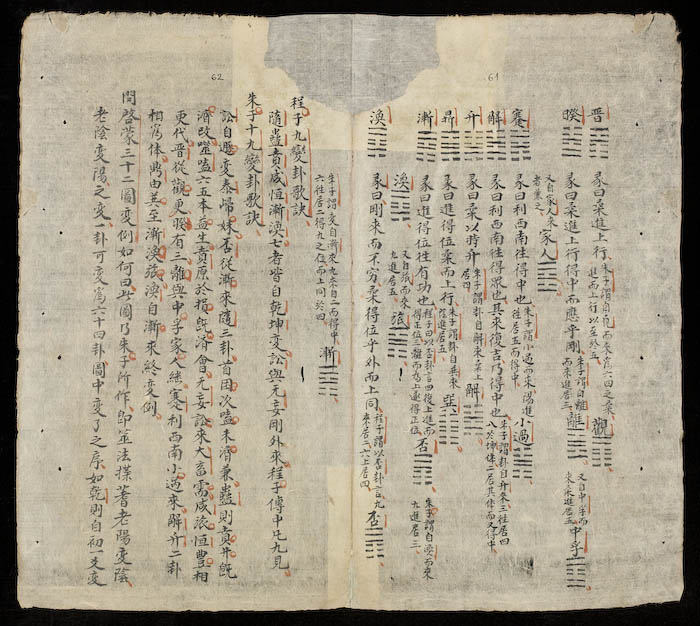 61
晋 彖曰柔進上行 朱子謂自觀而來爲六四之柔進而上行以至於五 觀
暌 彖曰柔進上行得中而應乎剛 朱子謂自離而來進居三 離 又自中孚而來柔進居五 中孚
又自家人來者兼之 家人
蹇 彖曰利西南往得中也 朱子謂小過而來陽進往居五而得中 小過
解 彖曰利西南往得眾也其來復吉乃得中也 朱子謂卦自升來三往居四入於坤体二居其体而又得中
升 彖曰柔以時升 朱子謂卦自解來柔上居四 解
鼎 彖曰進得位柔而上行 朱子謂卦自巽來陰進居五 巽
漸 彖曰進得位往有功也 程子曰以否卦言四復上進而得正位三離而爲上遂得正位 否
渙 又自旅而來九進居五 旅 朱子謂自渙而來九進居三
渙 彖曰剛來而不穷柔得位乎外而上同 程子謂以否卦言九來居二六上居四 否
62
朱子謂变自漸來九來自二而得中六往居二得九之位而上同於四 漸
程子九變卦歌訣
隨蠱賁咸恒漸渙七者皆自乾坤变訟與无妄剛外來程子傳中凡九見
朱子十九變卦歌訣
訟自遯变泰歸妹否從漸來隨三卦首困次噬未濟兼蠱則賁井旣
濟改噬嗑六五本益生賁原於損旣濟會无妄訟來大畜需咸旅恒豊相
更代晋從觀更暌有三離與中孚家人継蹇利西南小過來解升二卦
相爲体鼎由巽至漸渙旅渙自漸來終变例
問啓蒙三十二圖变例如何曰此圖乃朱子所作即筮法揲蓍老陽变陰
老陰变陽之变一卦可变爲六十四卦圖中变了之序如乾則自初一爻变